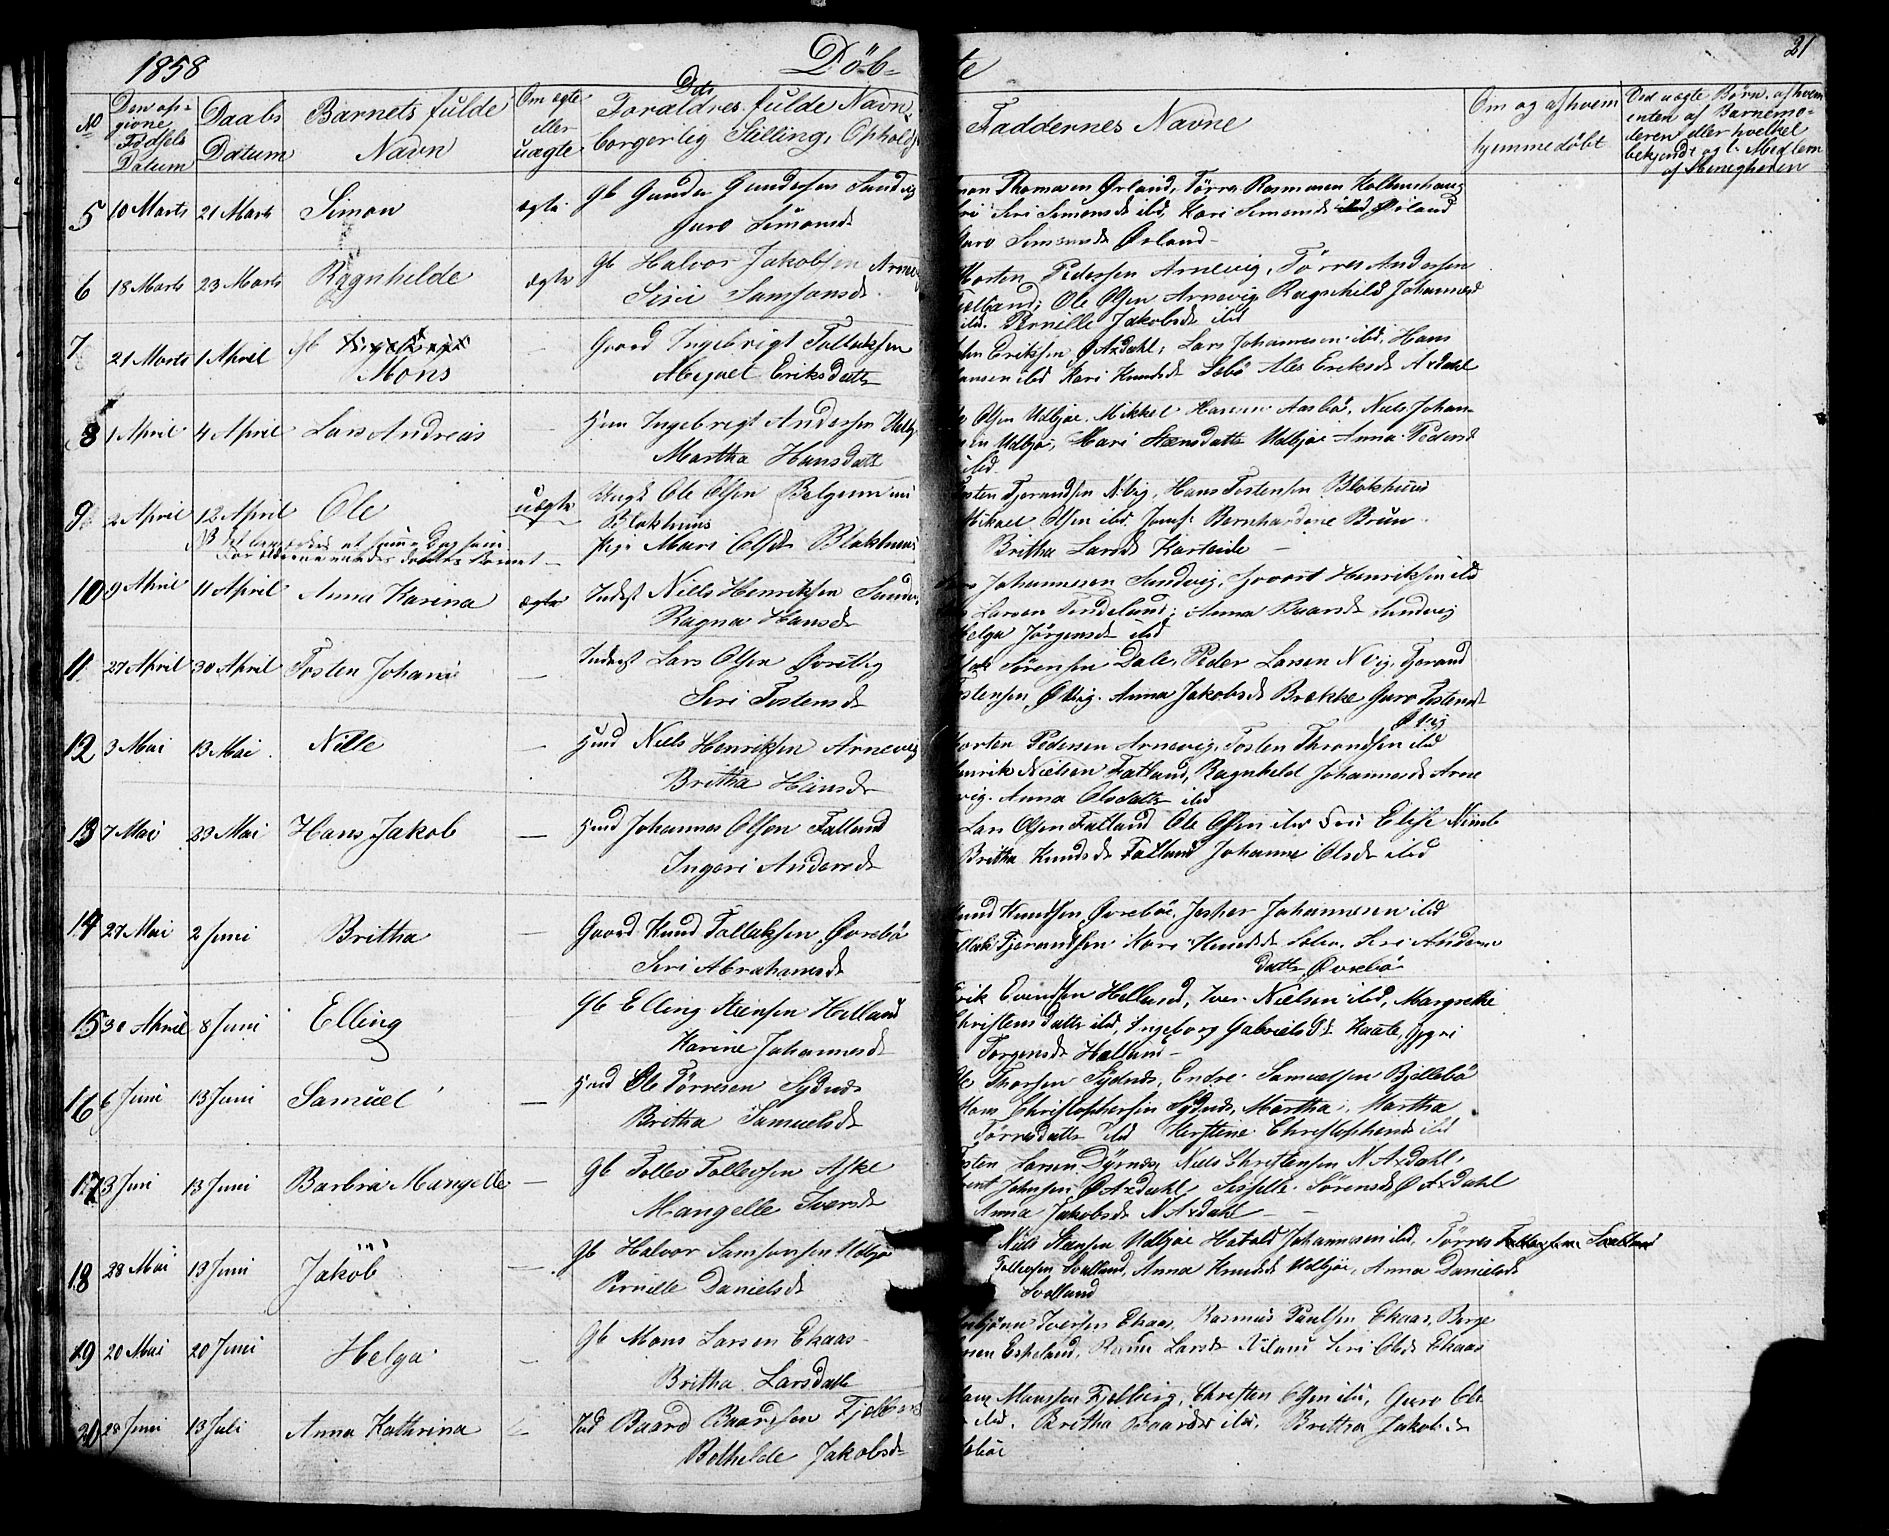 1858
Döb-
te
21
No
Den op-
givne
Födsels
Datum
Daabs
Datum
Barnets fulde
Navn
Om ægte
eller
uægte
Dets
Forældres fulde Navn,
borgerlig Stilling, Opholds
Faddernes Navne
Om og af hvem
hjemmedøbt
Ved uægte Børn, af hvem
enten af Barnemo-
deren eller hvilket
bekjendt og l. Medlem
af Menigheden
5 10 Marts 21 Marts Simon ægte Gb Gunder Gundersen Sandvig
Guro Simonsd
Thomasen Ørland, Tørres Rasmusen Kolbenshaug
Siri Simonsd ibd, Kari Simonsd ibd Ørland
Guro Simonsd Ørland
6 18 Marts 23 Marts Ragnhilde ægte Gb Halvor Jakobsen Arnevig
Siri Samsonsd
Morten Pedersen Arnevig, Törres Andersen
Fjelland, Ole Olsen Arnevig Ragnhild Johannesd
ibd. Pernille Jakobsd ibd
7 21 Marts 1 April Mons — Gaard Ingebrigt Tollaksen
Abigael Eriksdatter
Eriksen Ø Axdahl, Lars Johannesen ibd, Hans
Hansen ibd Kari Knudsd Sæbö Ales Eriksd Axdahl
8 1 April 4 April Lars Andreas — Huus Ingebrigt Andersen Udbj
Martha Hansdatt
Olsen Udbjoe, Mikkel Hansen Aasbö, Niels Johan-
sen Udbjoe, Mari Steensdatter Udbjoe Anna Pedersd
ibd
9 2 April 12 April Ole uægte Ungk Ole Olsen Belgum
Blokhuus
Pige Mari Olsd Blokhuus
Tosten Tjerandsen N. Vig, Hans Tostensen Blokhuus
Mikael Olsen ibd Jomf. Bernhardine Brun
Britha Larsd Kartvide —
10 9 April 11 April Anna Karina ægte Inderst Niels Henriksen Sandv
Ragna Hansd
Johannesen Sandvig, Sjovart Henriksen ibd
Larsen Tindeland, Anna Baarsd Sandvig
Helga Jörgensd ibd
11 27 April 30 April Tosten Johan — Inderst Lars Olsen Øvrevig
Siri Tostensd
Sörensen Dale, Peder Larsen N Vig, Tjerand
Tostensen, Ø Vig. Anna Jakobsd Brekke, Guro Tostensd
Ø Vig
12 3 Mai 13 Mai Nille — Huusd Niels Henriksen Arnevig
Britha Hansd
Morten Pedersen Arnevig, Tosten Throndsen ibd
Henrik Nielsen Fatland, Ragnhild Johannesd Arne
vig. Anna Olsdatter ibd
13 7 Mai 23 Mai Hans Jakob — Huusd Johannes Olsen Fatland
Ingeri Andersd
Lars Olsen Fatland Ole Olsen ibd Siri Elise
Britha Knudsd Fatland Johanne Olsd ibd
14 27 Mai 2 Juni Britha — Gaard Knud Tollaksen Øvrebö
Siri Abrahamsd
Knud Knudsen Øvrebö, Jesper Johannesen ibd
Tollak Tjerandsen Kari Knudsd Sæbö, Siri Anders
datter Øvrebö
15 30 April 8 Juni Elling — Gb Elling Steensen Helland
Karine Johannesd
Erik Evendsen Helland, Iver Nielsen ibd, Margrethe
Christensdatter ibd, Ingeborg Gabrielsd Kaate, Jygri
Torgersd Halland —
16 6 Juni 13 Juni Samuel — Huusd Ole Törresen Sydnæs
Britha Samuelsd
Ole Thorsen Sydnæs, Endre Samuelsen Bjellebö
Mons Christophersen Sydnæs, Martha, Martha
Törresdatter ibd Kerstine Christophersd ibd
17 3 Juni 13 Juni Barbra Mangelle — Gb Tollev Tollevsen Aske
Mangelle Iversd
Tosten Larsen Dyrnæs Niels Christensen N Axdahl,
Johnsen Ø Axdahl Sissella Sörensd Ø Axdahl
Anna Jakobsd N Axdahl — —
18 28 Mai 13 Juni Jakob — Gb Halvor Samsonsen Udbjoe
Pernille Danielsd
Niels Steensen Udbjoe Hatald Johannesen ibd, Törres
Tollevsen Svolland, Anna Knudsd Udbjoe, Anna Danielsd
Svolland
19 20 Mai 20 Juni Helga — Gb Mons Larsen Ekaas
Britha Larsdatter
Iversen Ekaas, Rasmus Paulsen Ekaas, Berge
Espeland, Larsd Siri Olsd Ekaas
20 28 Juni 13 Juli Anna Kathrina — Ind Baard Baardsen Fjelberg
Bothilde Jakobsd
Monsen Fjelberg, Christen Olsen ibd, Guro Ols
ibd. Britha Baardsd ibd, Brittha Jakobsd